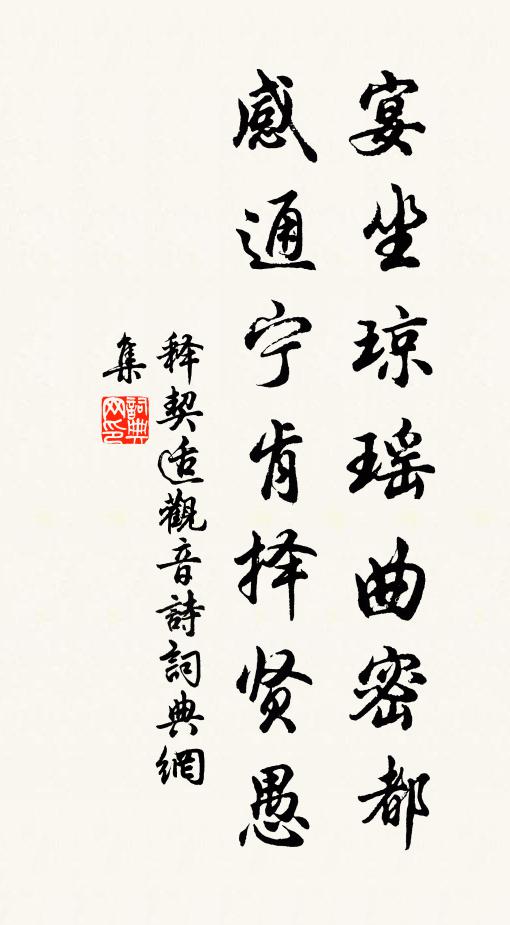 宴坐琼瑶曲密都
感通宁肯择贤愚
释契适觀音詩詞典網
集
詞典
网印